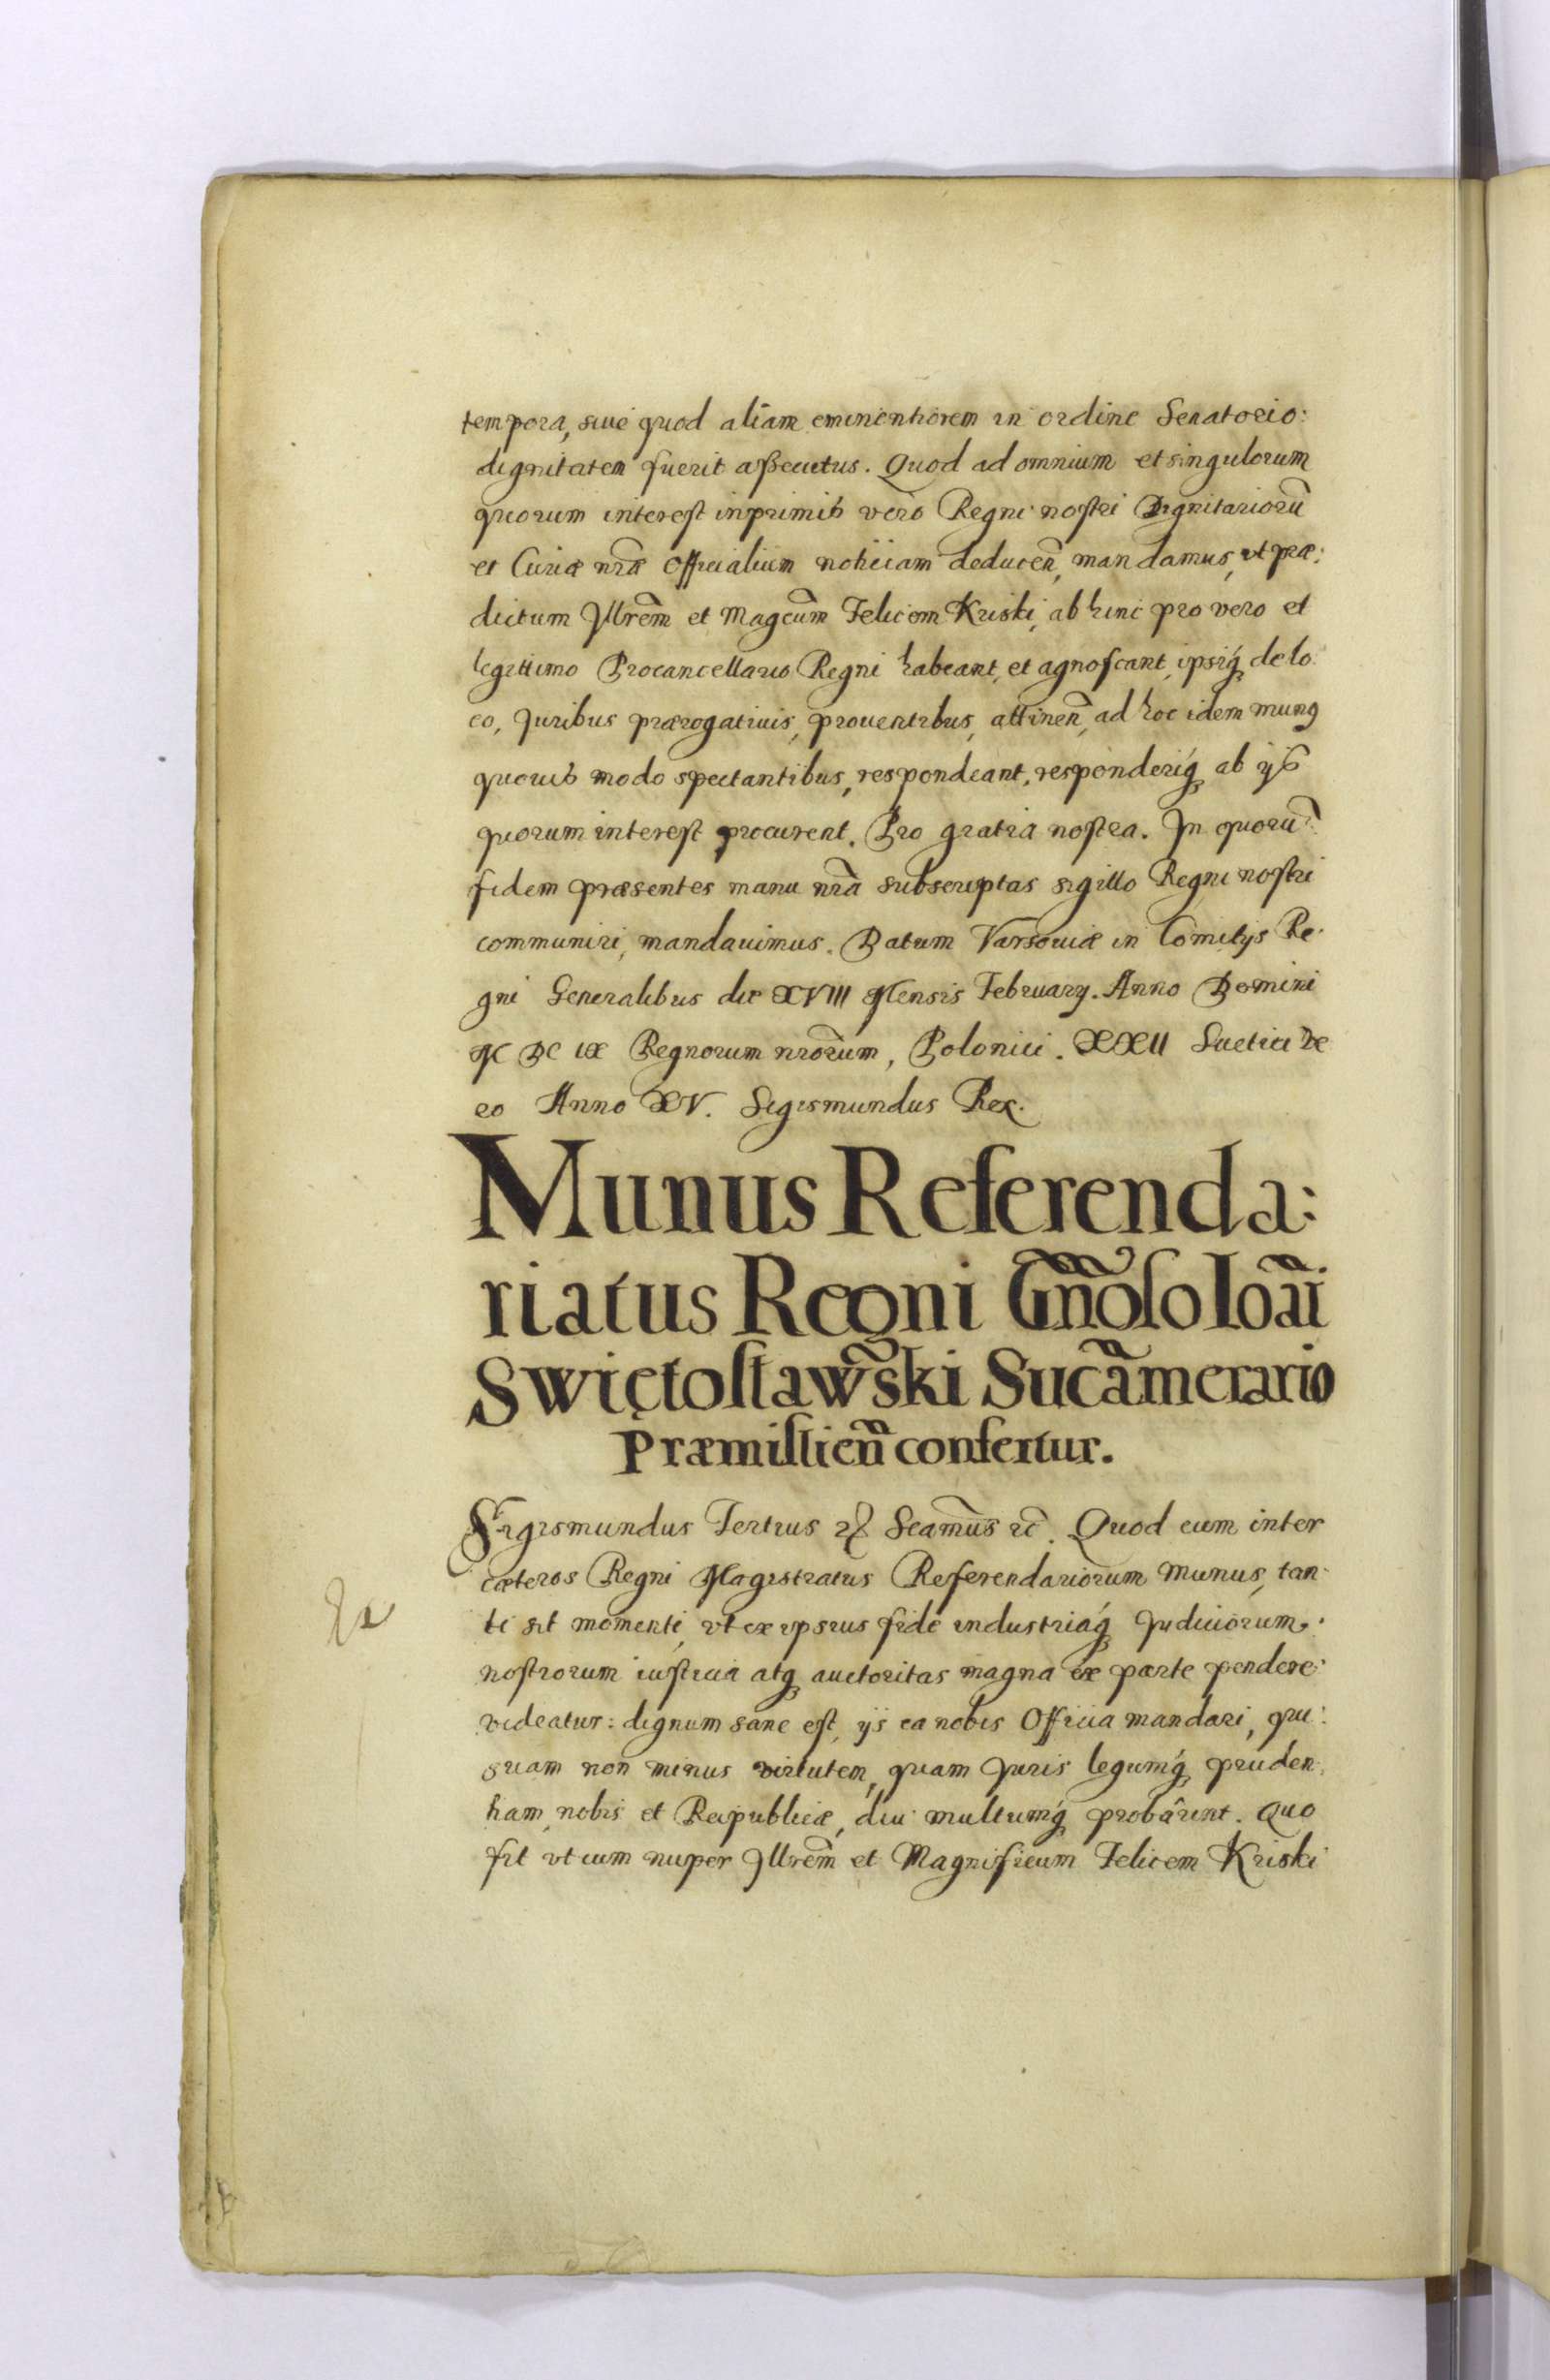 tempora, siue quod aliam eminentiorem in ordine Senatorio:
dignitatem fuerit aßecutus. Quod ad omnium et singulorum
quorum interest inprimis vero Regni nostri Dignitariorũ
et Curiæ nr̃æ Officialium notitiam deduceñ, mandamus, vt præ:
dictum Jllrẽm et Magcũm Felicem Kriski, ab hinc pro vero et
legittimo Procancellario Regni habeant, et agnoscant, ipsiq́ʒ de lo
co, Juribus prærogatiuis, prouentibus, attineñ, ad hoc idem munꝰ
quouis modo spectantibus, respondeant, responderiq́ʒ ab ijs
quorum interest procurent. Pro gratia nostra. Jn quorũ
fidem præsentes manu nr̃a subscriptas sigillo Regni nostri
communiri, mandauimus. Datum Varsouiæ in Comitijs Re:
gni Generalibus die XVIII Mensis February. Anno Domini
M DC IX Regnorum nrõrum, Polonici. XXII Suetici ve
ro Anno XV. Sigismundus Rex.
Munus Referenda:
riatus Regni Gñõso Ioãi
Swiętosławski Sucãmerario
Præmislieñ confertur.
Sigismundus Tertius ꝛc̃ Scamũs ꝛc̃. Quod cum inter
cæteros Regni Magistratus Referendariorum munus, tan
ti sit momenti, vt ex ipsius fide industriaq́ʒ Judiciorum
nostrorum iusticia atqʒ auctoritas magna ex parte pendere:
videatur: dignum sane est, ijs ea nobis Officia mandari, qui:
suam non minus virtutem, quam Juris legumq́ʒ pruden:
tiam, nobis et Reipublicæ, diu multumq́ʒ probârint. Quo
fit vt cum nuper Jllrẽm et Magnificum Felicem Kriski